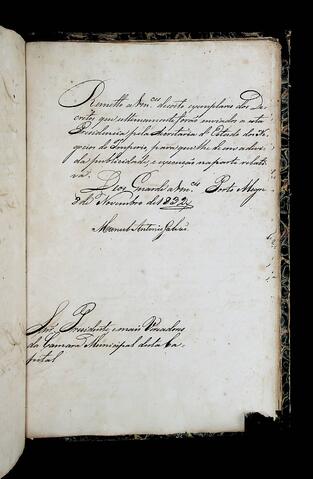 Remetto a Vm.ces dezoito exemplares dos De-
cretos, que ultimamente forão enviados a esta
Presidencia pela Secretaria d'Estado dos Ne-
gocios do Imperio, para que lhes de a devi-
da publicidade, e execução na parte relati-
va.
Deos Guarde a Vm.ces Porto Alegre
8 de Novembro de 1832
Manoel Antonio Galvão
Snr.es Presidente, e mais Vereadores
da Camara Municipal desta Ca-
pital